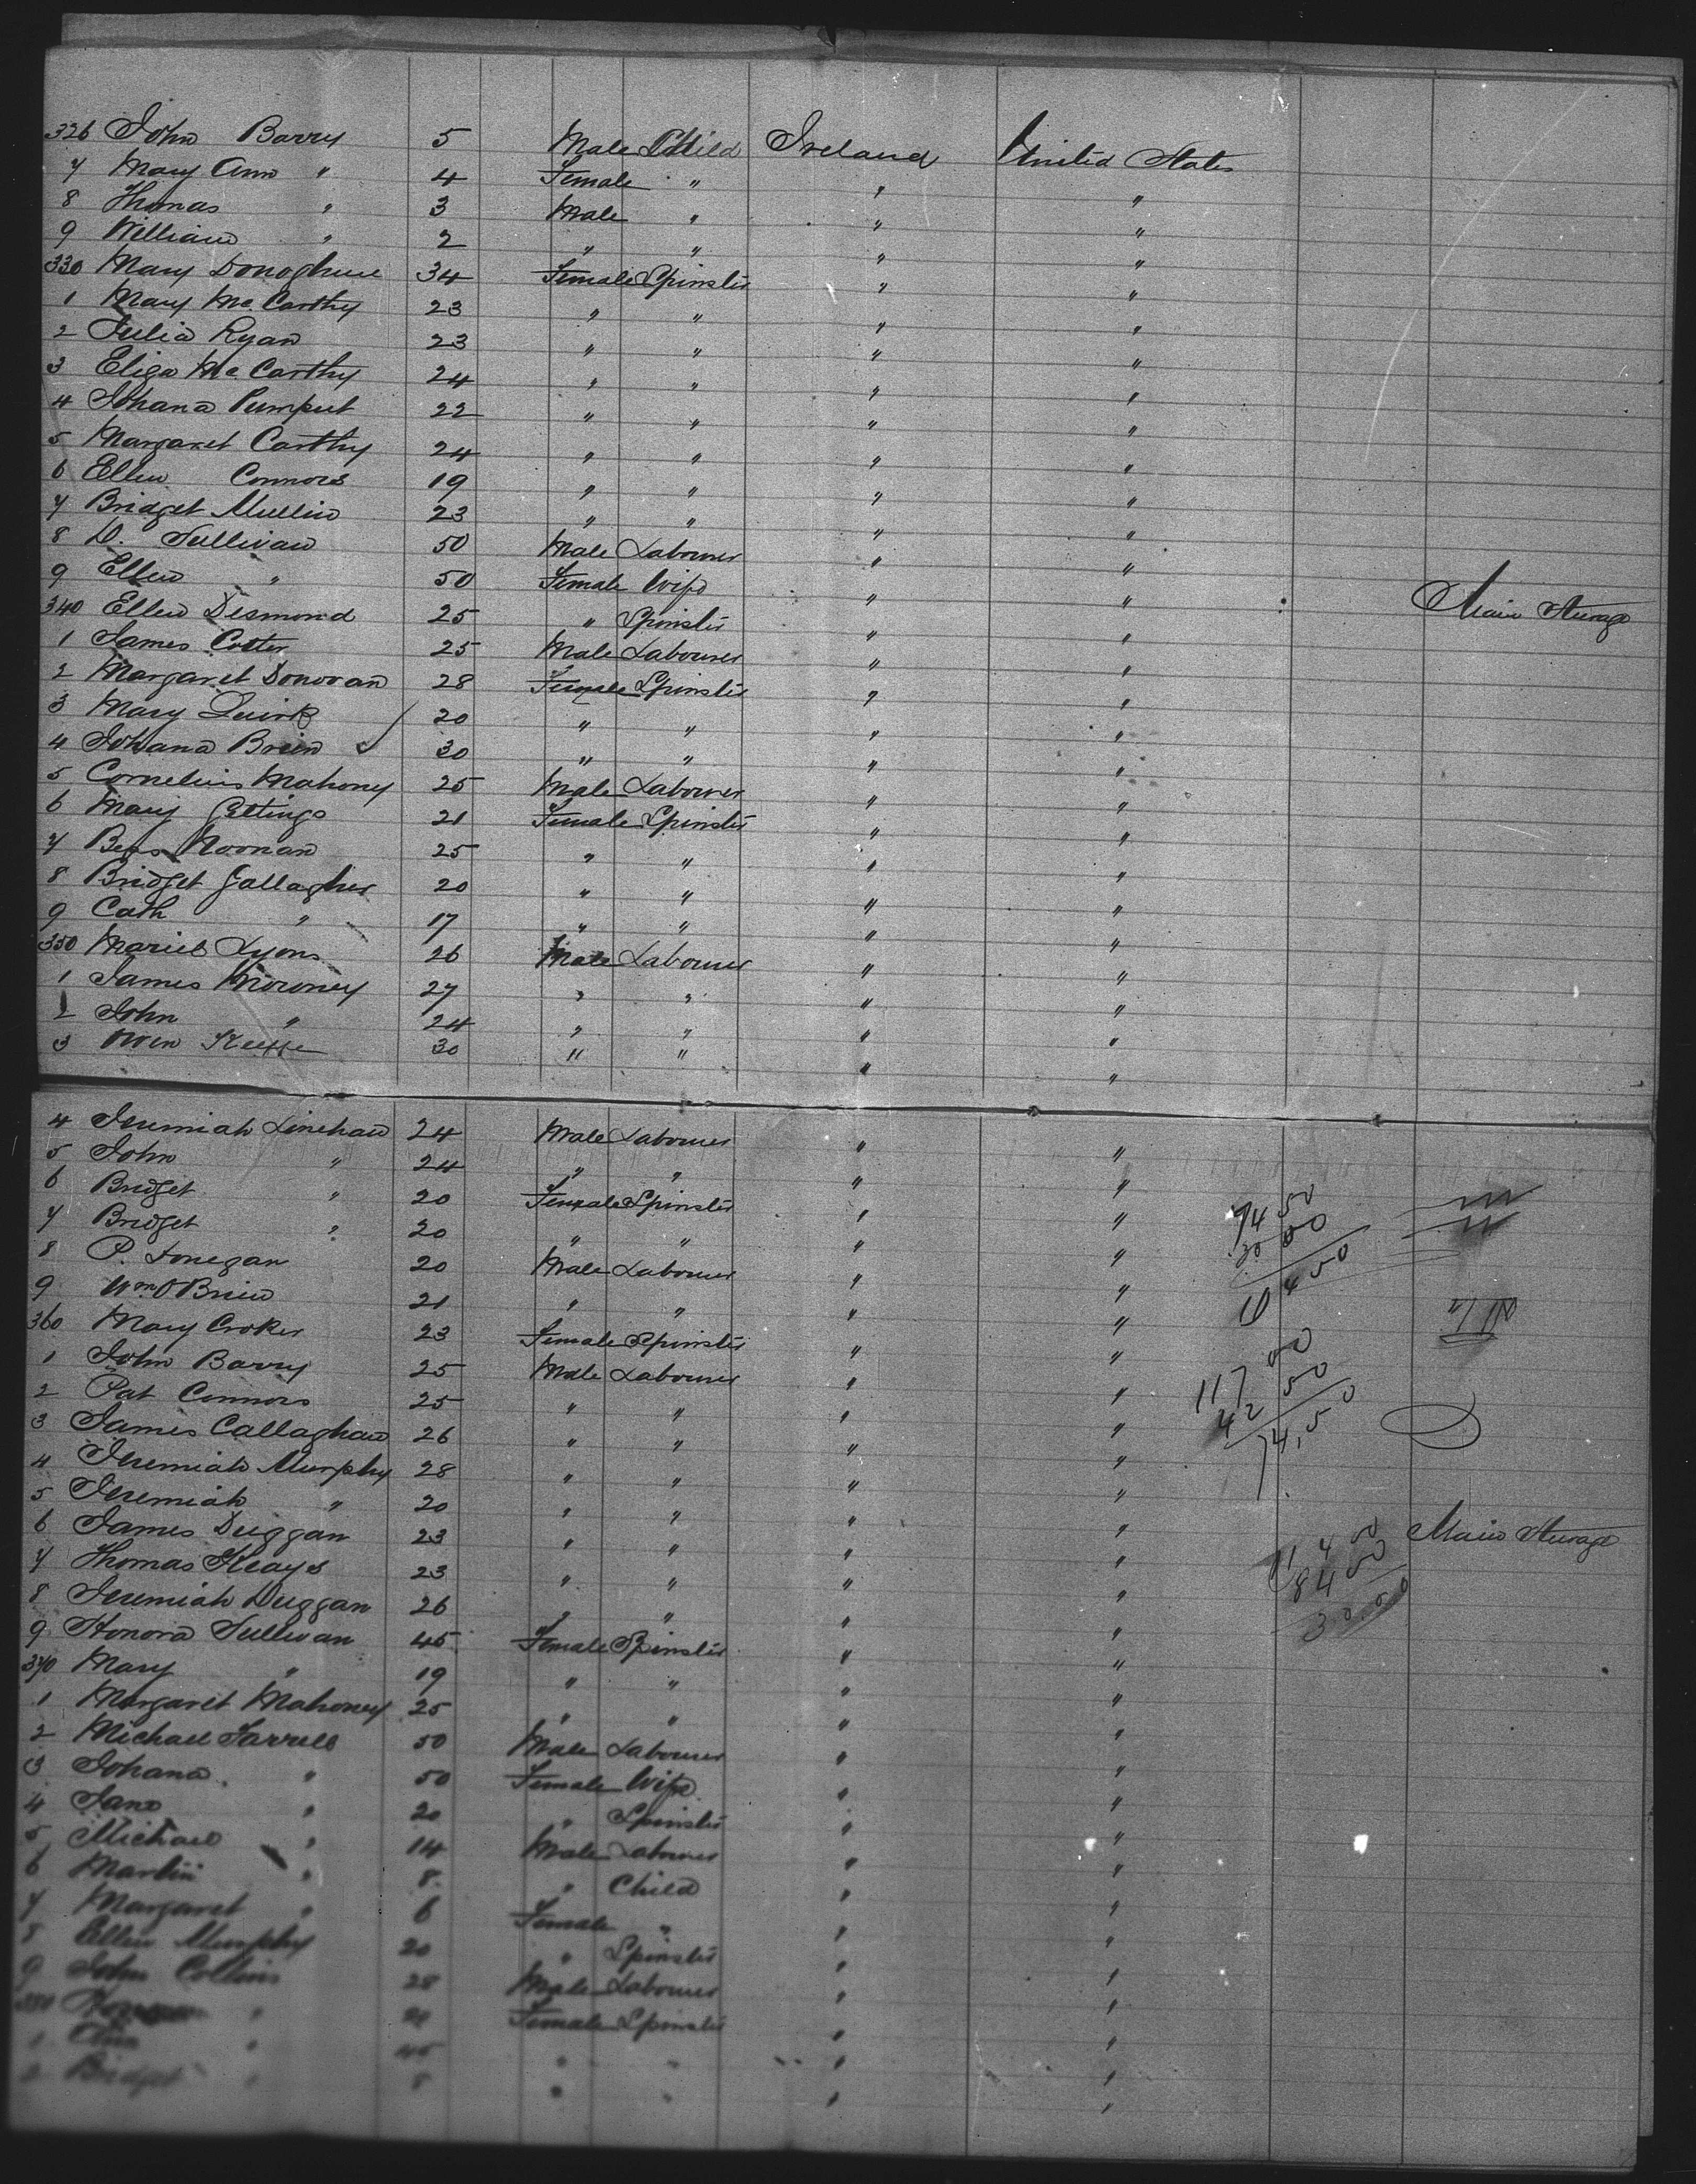 326 John Barry 5 Male Child Ireland United States
7 Mary Ann " 4 Female " " "
8 Thomas " 3 Male " " "
9 William " 2 " " " "
330 Mary Donoghue 34 Female Spinster " "
1 Mary McCarthy 23 " " " "
2 Julia Ryan 23 " " " "
3 Eliza McCarthy 24 " " " "
4 Johana 22 " " " "
5 Margaret Carthy 24 " " " "
6 Ellen Connors 19 " " " "
7 Bridget Mullin 23 " " " "
8 D. Sullivan 50 Male Labourer " "
9 Ellen " 50 Female Wife " "
340 Ellen Desmond 25 " Spinster " " Main Steerage
1 James Cotter 25 Male Labourer " "
2 Margaret Donovan 28 Female Spinster " "
3 Mary Quirk 20 " " " "
4 Johana Brien 30 " " " "
5 Cornelius Mahony 25 Male Labourer " "
6 Mary Gettings 21 Female Spinster " "
7 Bess Noonan 25 " " " "
8 Bridget Gallagher 20 " " " "
9 Cath " 17 " " " "
350 Lyons 26 Male Labourer " "
1 James Moroney 27 " " " "
2 John " 24 " " " "
3 Owen Keeffe 30 " " " "
4 Jeremiah Linehan 24 Male Labourer " "
5 John " 24 " " " "
6 Bridget " 20 Female Spinster " "
7 Bridget " 20 " " " "
8 P. Donegan 20 Male Labourer " "
9 Wm O'Brien 21 " " " "
360 Mary Croker 23 Female Spinster " "
1 John Barry 25 Male Labourer " "
2 Pat Connors 25 " " " "
3 James Callaghan 26 " " " "
4 Jeremiah Murphy 28 " " " "
5 Jeremiah " 20 " " " "
6 James Duggan 23 " " " " Main Steerage
7 Thomas Keays 23 " " " "
8 Jeremiah Duggan 26 " " " "
9 Honora Sullivan 45 Female Spinster " "
370 Mary " 19 " " " "
1 Margaret Mahoney 25 " " " "
2 Michael Farrell 50 Male Labourer " "
3 Johana " 50 Female Wife " "
4 Jane " 20 " Spinster " "
5 Michael " 14 Male Labourer " "
6 Martin " 8 " Child " "
7 Margaret " 6 Female " " "
8 Ellen Murphy 20 " Spinster " "
9 John Collins 28 Male Labourer " "
380 " Female Spinster " "
1 " 45 " " " "
2 Bridget " 8 " " " "
74 50
30 00
104 50
117 00
42 50
74,50
114 00
84 00
30.00